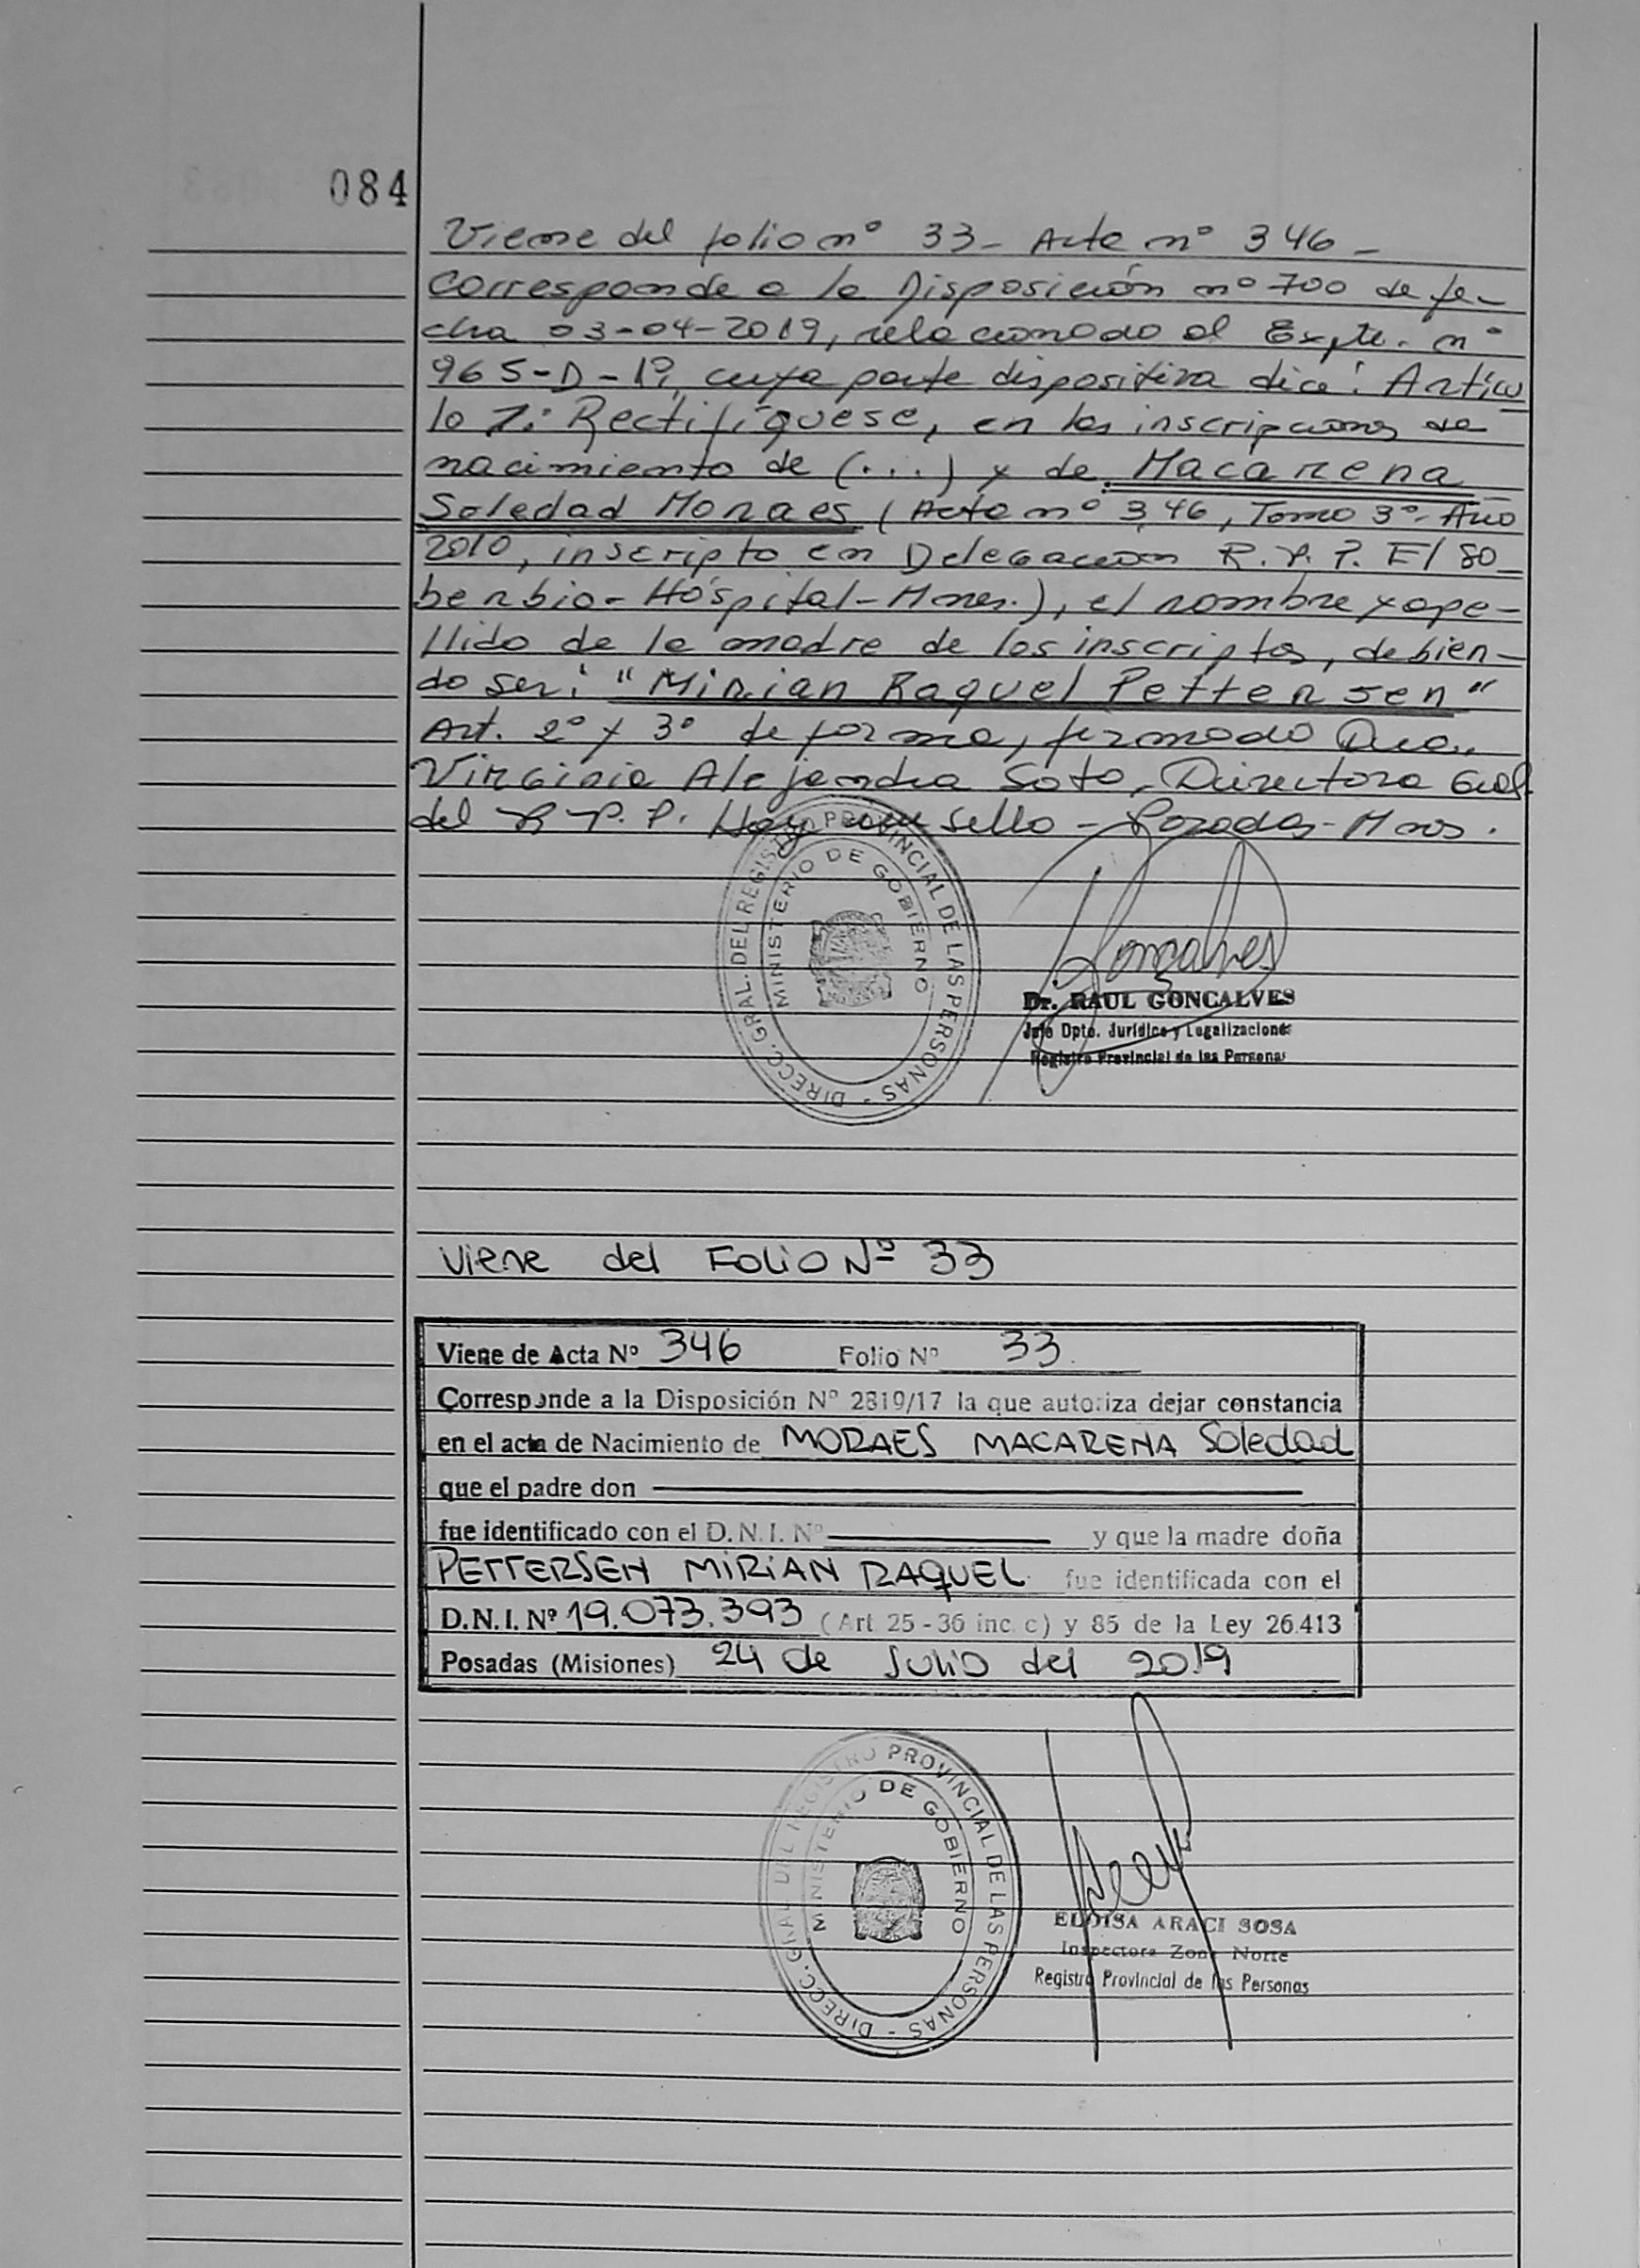 084
Viene del folio nº 33 - Acta nº 346 -
Corresponde a la Disposición nº 700 de fe-
cha 03-04-2019, relacionado al Expte. nº
965-D-19, cuya parte dispositiva dice: Artícu
lo 1: Rectifíquese, en las inscripciones de
nacimiento de (...) y de Macarena
Soledad Moraes (Acta nº 346, Tomo 3º- Año
2010, inscripto en Delegación R.P.P. El So
berbio - Hospital - Mnes.), el nombre y ape-
llido de la madre de los inscriptos, debien-
do ser: "Mirian Raquel Pettersen"
Art. 2º y 3º de forma, firmado Dra.
Virginia Alejandra Soto, Directora Gral
del R.P.P. Hay un sello - Posadas - Mnes.
DIRECC. GRAL. DEL REGISTRO PROVINCIAL DE LAS PERSONAS -
MINISTERIO DE GOBIERNO
Gonçalves
Dr. RAUL GONCALVES
Jefe Dpto. Jurídico y Legalizaciones
Registro Provincial de las Personas
Viene del FOLIO Nº 33
Viene de Acta Nº 346 Folio Nº 33
Corresponde a la Disposición Nº 2819/17 la que autoriza dejar constancia
en el acta de Nacimiento de MORAES MACARENA Soledad
que el padre don
fue identificado con el D.N.I. Nº y que la madre doña
PETTERSEN MIRIAN RAQUEL fue identificada con el
D.N.I. Nº 19.073.393 (Art. 25 - 36 inc. c) y 85 de la Ley 26.413
Posadas (Misiones) 24 de Julio del 2019
DIRECC. GRAL. DEL REGISTRO PROVINCIAL DE LAS PERSONAS -
MINISTERIO DE GOBIERNO
ELOISA ARACI SOSA
Inspectora Zona Norte
Registro Provincial de las Personas